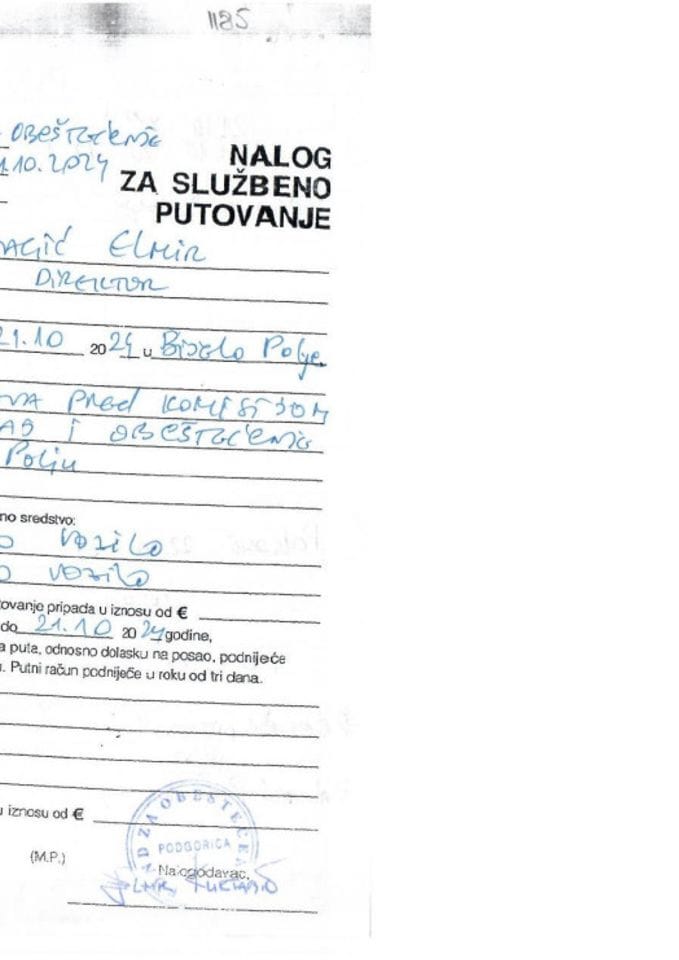 1185
OBEŠTEĆENJA
1.10.2024
NALOG
ZA SLUŽBENO
PUTOVANJE
AGIĆ ELMIR
DIREKTOR
21.10 2024 u Bijelo Polje
PRED KOMISIJOM
I OBEŠTEĆENJA
Polju
no sredstvo:
O VOZILO
O VOZILO
tovanje pripada u iznosu od €
do 21.10 2024 godine,
a puta, odnosno dolasku na posao, podnijeće
. Putni račun podnijeće u roku od tri dana.
u iznosu od €
DZA OBEŠTEĆENJA
PODGORICA
(M.P.)
Nalogodavac,